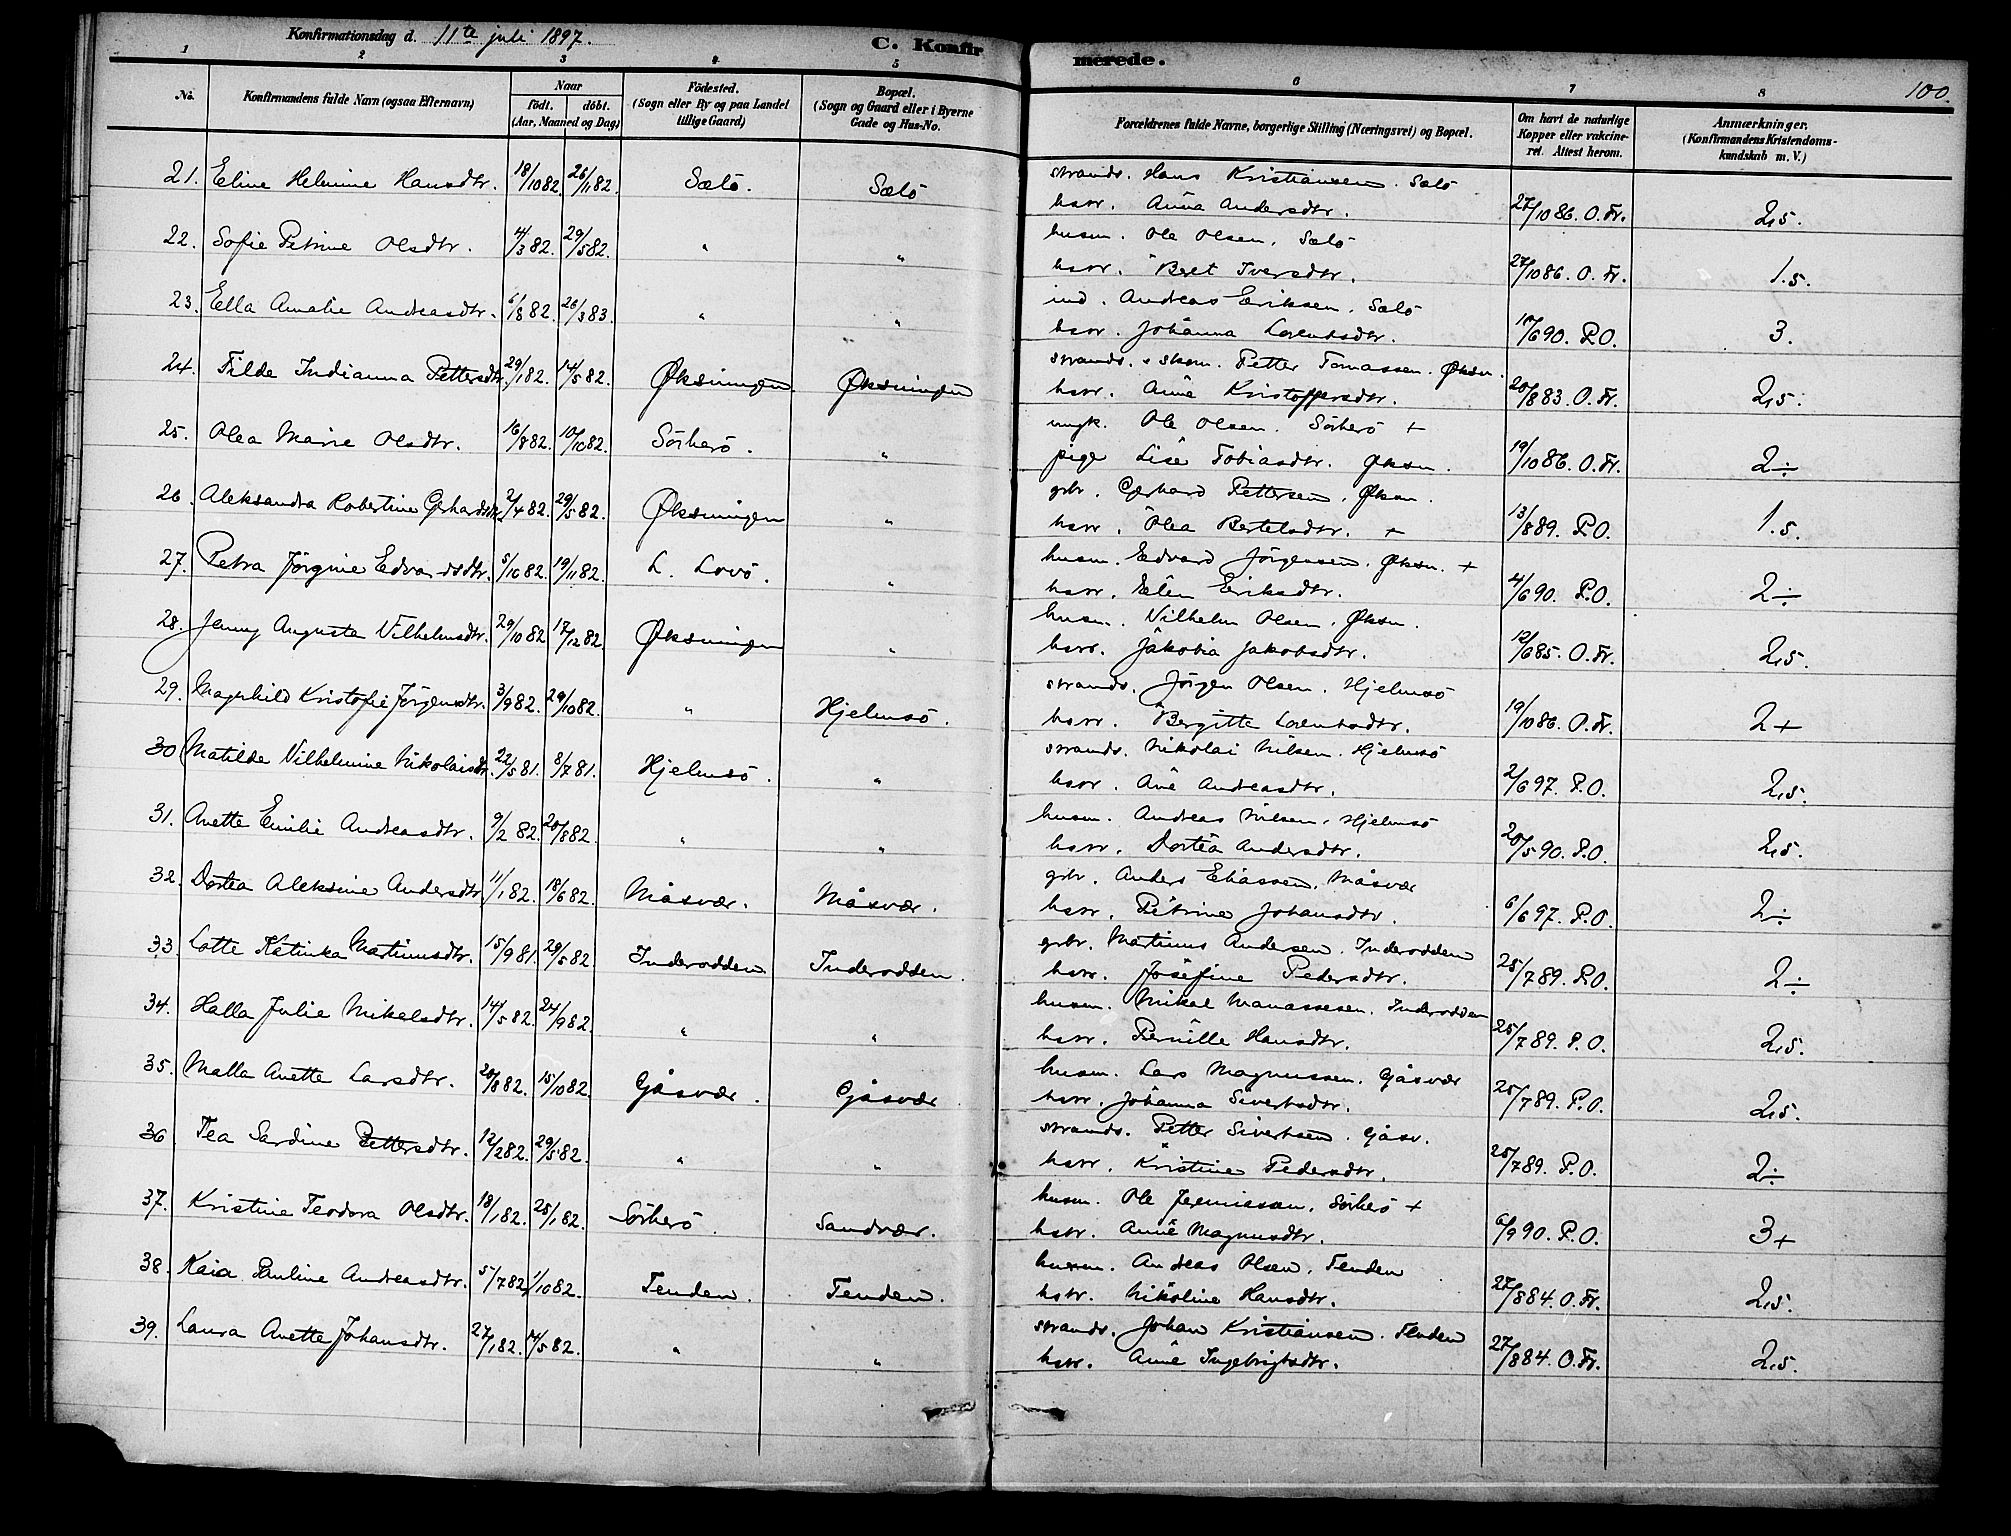 Konfirmationsdag d. 11te juli 1897.
C. Konfirmerede.
100.
1 2 3 4 5 6 7 8
No. Konfirmandens fulde Navn (ogsaa Efternavn) Naar födt. döbt. (Aar, Maaned og Dag) Födested. (Sogn eller By og paa Landet tillige Gaard) Bopæl. (Sogn og Gaard eller i Byerne Gade og Hus-No. Forældrenes fulde Navne, borgerlige Stilling (Næringsvei) og Bopæl. Om havt de naturlige Kopper eller vakcineret. Attest herom. Anmærkninger. (Konfirmandens Kristendomskundskab m. V.)
21. Eline Helmine Hansdtr. 18/10 82. 26/11 82. Sælö. Sælö strands. Hans Kristiansen. Sælö
hstr. Anna Andersdtr. 27/10 86. O. Fr. 2,5.
22. Sofie Petrine Olsdtr. 4/3 82. 29/5 82. " " husm. Ole Olsen. Sælö
hstr. Beret Iversdtr. 27/10 86. O. Fr. 1.5.
23. Ella Amalie Andreasdtr. 6/8 82. 26/3 83. " " ind. Andreas Eriksen. Sælö
hstr. Johanna Lorentsdtr. 17/6 90. P.O. 3.
24. Tilde Indianna Pettersdtr. 29/1 82. 14/5 82. Øksningen Øksningen strands. & skom. Petter Tomassen. Øksn.
hstr. Ane Kristoffersdtr. 20/8 83. O. Fr. 2,5.
25. Olea Marie Olsdtr. 16/8 82. 10/10 82. Sörherö. " ungk. Ole Olsen. Sörherö +
pige Lise Tobiasdtr. Øksn. 19/10 86. O. Fr. 2÷
26. Aleksandra Robertine Gerhardsdtr. 2/4 82. 29/5 82. Øksningen " gbr. Gerhard Pettersen. Øksn.
hstr. Olea Bertelsdtr. + 13/8 89. P.O. 1.5.
27. Petra Jörgine Edvardsdtr. 5/10 82. 19/11 82. L. Lovö. " husm. Edvard Jörgensen. Øksn. +
hstr. Elen Eriksdtr. 4/6 90. P.O. 2÷
28. Jenny Augusta Vilhelmsdtr. 29/10 82 17/12 82. Øksningen " husm. Vilhelm Olsen. Øksn.
hstr. Jakobia Jakobsdtr. 12/6 85. O. Fr. 2,5.
29. Magnhild Kristofie Jörgensdtr. 3/9 82. 29/10 82. " Hjelmsö. strands. Jörgen Olsen. Hjelmsö
hstr. Bergitte Lorentsdtr. 19/10 86. O. Fr. 2+
30 Matilde Vilhelmine Nikolaisdtr. 22/5 81. 8/7 81. Hjelmsö. " strands. Nikolai Nilsen. Hjelmsö
hstr. Ane Andreasdtr. 2/6 97. P.O. 2,5.
31. Anette Emilie Andreasdtr. 9/2 82. 20/8 82. " " husm. Andreas Nilsen. Hjelmsö
hstr. Dortea Andersdtr. 20/5 90. P.O. 2,5.
32. Dortea Aleksine Andersdtr. 11/1 82. 18/6 82. Måsvær. Måsvær. gbr. Anders Eliassen. Måsvær
hstr. Petrine Johansdtr. 6/6 97. P.O. 2÷
33. Lotte Katinka Martinusdtr. 15/9 81. 29/5 82. Inderodden. Inderodden. gbr. Martinus Andersen. Inderodden
hstr. Josefine Pedersdtr. 25/7 89. P.O. 2÷
34. Halla Julie Mikalsdtr. 14/5 82. 24/9 82. " " husm. Mikal Manassesen. Inderodden
hstr. Pernille Hansdtr. 25/7 89. P.O. 2,5.
35. Malla Anette Larsdtr. 20/8 82. 15/10 82. Gåsvær. Gåsvær husm. Lars Magnussen. Gåsvær
hstr. Johanna Sivertsdtr. 25/7 89. P.O. 2,5.
36. Tea Sardine Pettersdtr. 12/2 82. 29/5 82. " " strands. Petter Sivertsen. Gåsv.
hstr. Kristine Pedersdtr. 25/7 89. P.O. 2÷
37. Kristine Teodora Olsdtr. 18/1 82. 25/1 82. Sörherö. Sandvær. husm. Ole Jeremiesen. Sörherö +
hstr. Ane Magnusdtr. 6/9 90. P.O. 3+
38. Kaia Pauline Andreasdtr. 5/7 82. 1/10 82. Tenden. Tenden. husm. Andreas Olsen. Tenden
hstr. Nikoline Hansdtr. 27/8 84. O. Fr. 2,5.
39. Laura Anette Johansdtr. 27/1 82. 14/5 82. " " strands. Johan Kristiansen. Tenden
hstr. Ane Ingebrigtsdtr. 27/8 84. O. Fr. 2,5.